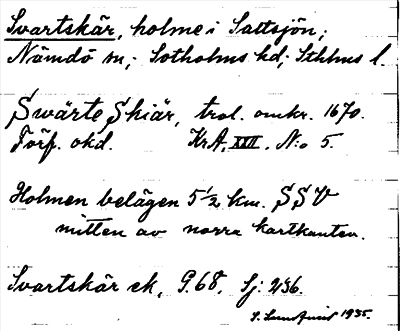 Svartskär, holme i Saltsjön;
Nämdö sn; Sotholms hd; Sthlms l.
Swärte Skiär, trol. omkr. 1670.
Förf. okd. KrA, XXII, N:o 5.
Holmen belägen 5 ½ km. SSV
mitten av norra kartkanten.
Svartskär ek, G.68, Sj: 236.
1935.